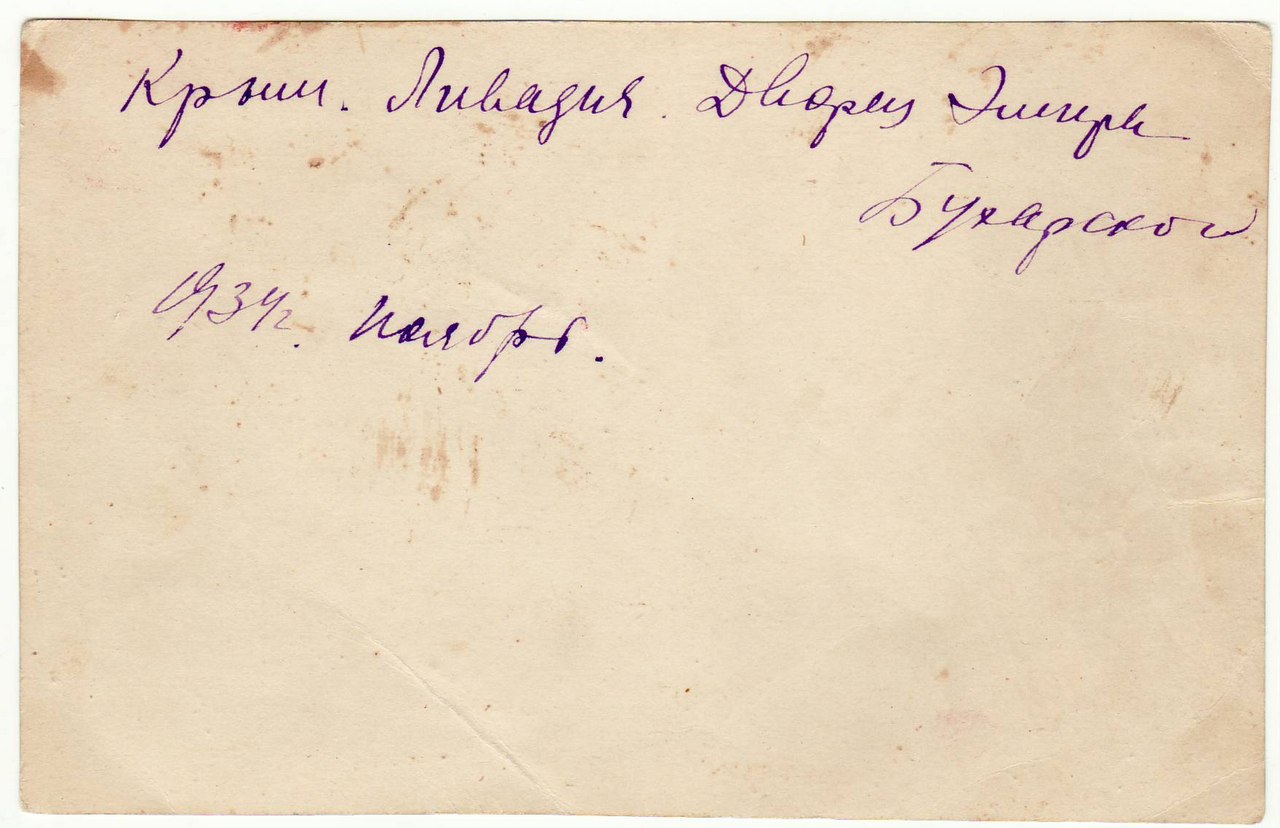 Крым. Ливадия. Дворец Эмира
Бухарского
1934г. Ноябрь.